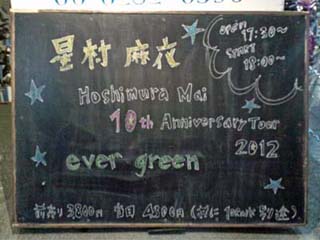 星村 麻衣
open 17:30〜
start 18:00〜
Hoshimura Mai
10th Anniversary Tour
2012
ever green
前売り 3800円 当日 4300円 (共に 1drink 別途)